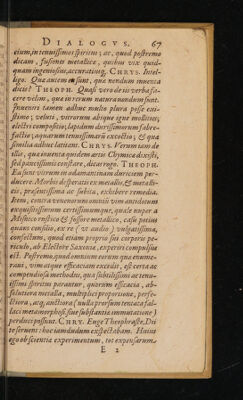 DIALOGVS. 67
cium, in tenuissimos spiritus; ac, quod postremo
dicam, fusiones metallicæ, quibus vix quid-
quam ingeniosius, accuratiusq;. CHRYS. Intel-
ligo. Quæ autem ea sunt, quæ nondum inuenta
dicis? THEOPH. Quasi vero de iis verba fa-
cere velim, quæ in rerum natura nondum sunt.
Inuenire tamen adhuc multa plura posse exi-
stimo; veluti, vitrorum absque igne mollities;
electri compositio; lapidum durissimorum fabre-
factio; aquarum tenuissimarū excoctio; & quæ
similia adhuc latitant. CHRYS. Verum tam de
illis, quæ inuenta quidem artis Chymicæ dixisti,
sed paucissimis constare, dicas rogo. THEOPH.
Ea sunt vitrum in adamantinam duriciem per-
ducere. Morbis desperatis ex metallis, & metalli-
cis, præsentissima ac subita, exhibere remedia.
Item, contra venenorum omniū vim antidotum
exquisitissimum certissimumque, quale nuper a
Misnico rustico & fossore metallico, casu potius
quam consilio, ex re (vt audio) vulgatissima,
confectum, quod etiam proprio suo corporis pe-
riculo, ab Electore Saxoniæ, experiri compulsus
est. Postremo, quod omnium rerum quæ enume-
raui, vim atque efficaciam excedit, est certa ac
compendiosa methodus, quæ subtilissimi ac tenu-
issimi spiritus parantur, quorum efficacia, ab-
solutiora metalla, multiplici proportione, perfe-
ctiora, acq; auctiora (nulla prorsum tentata fal-
laci metamorphosi siue substantiæ immutatione)
perduci possunt. CHRY. Euge Theophraste, Dii
te seruent: hoc iamdudum expectabam. Huius
ego ob scientia experimentum, tot expensarum
E 2